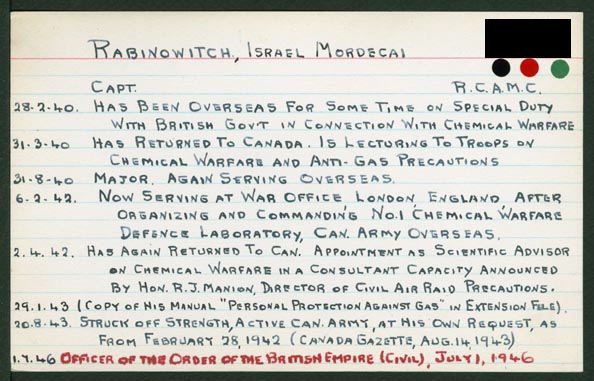 RABINOWITCH, ISRAEL MORDECAI
CAPT. R.C.A.M.C.
28-2-40. HAS BEEN OVERSEAS FOR SOME TIME ON SPECIAL DUTY
WITH BRITISH GOV'T IN CONNECTION WITH CHEMICAL WARFARE
31-3-40 HAS RETURNED TO CANADA. IS LECTURING TO TROOPS ON
CHEMICAL WARFARE AND ANTI-GAS PRECAUTIONS
31-8-40 MAJOR. AGAIN SERVING OVERSEAS.
6-2-42. NOW SERVING AT WAR OFFICE, LONDON, ENGLAND, AFTER
ORGANIZING AND COMMANDING NO.1 CHEMICAL WARFARE
DEFENCE LABORATORY, CAN. ARMY OVERSEAS.
2.4.42. HAS AGAIN RETURNED TO CAN. APPOINTMENT AS SCIENTIFIC ADVISOR
ON CHEMICAL WARFARE IN A CONSULTANT CAPACITY ANNOUNCED
BY HON. R.J. MANION, DIRECTOR OF CIVIL AIR RAID PRECAUTIONS.
29.1.43 (COPY OF HIS MANUAL "PERSONAL PROTECTION AGAINST GAS" IN EXTENSION FILE).
20.8.43. STRUCK OFF STRENGTH, ACTIVE CAN. ARMY, AT HIS OWN REQUEST, AS
FROM FEBRUARY 28, 1942 (CANADA GAZETTE, AUG. 14, 1943)
1.7.46 OFFICER OF THE ORDER OF THE BRITISH EMPIRE (CIVIL), JULY 1, 1946